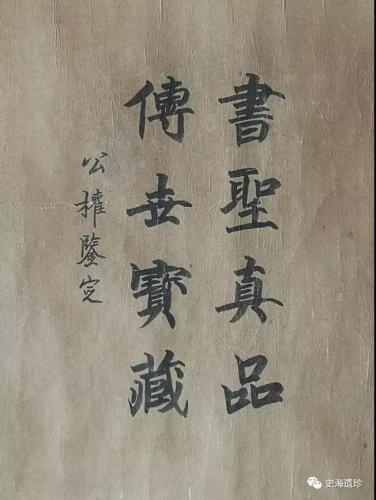 書聖真品
傳世寳藏
公權鑒定
史海遗珍